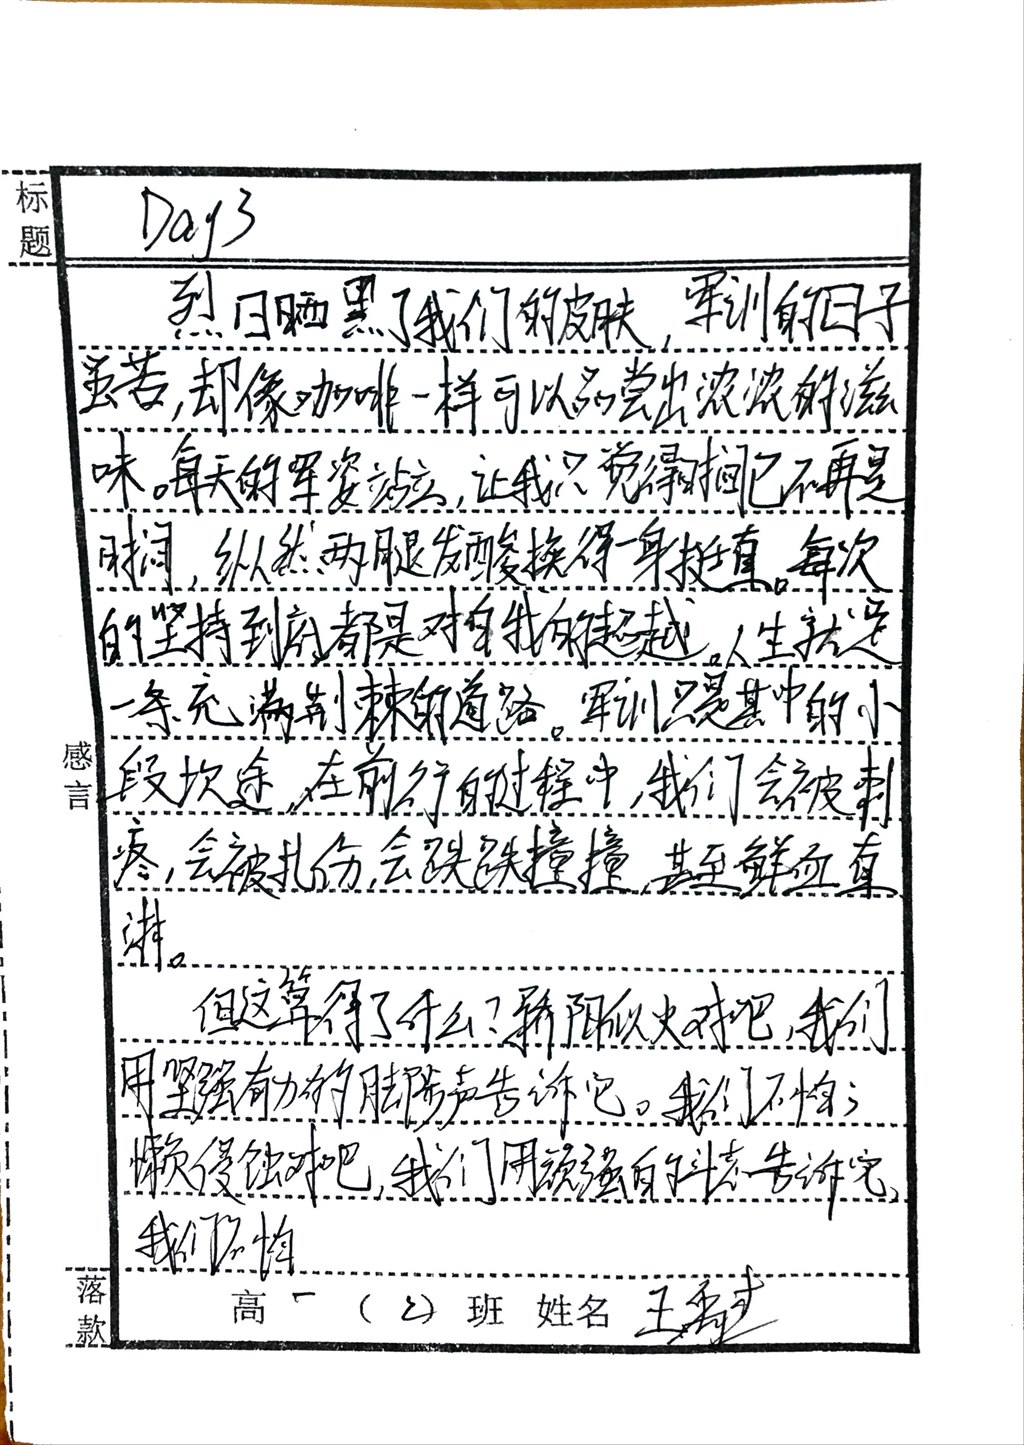 标题
Day3
烈日晒黑了我们的皮肤，军训的日子
虽苦，却像咖啡一样可以品尝出浓浓的滋
味。每天的军姿站立，让我只觉得时间已不再是
时间，纵然两腿发酸换得一身挺直。每次
的坚持到底都是对自我的超越。人生就是
一条充满荆棘的道路。军训只是其中的小
段坎途，在前行的过程中，我们会被刺
疼，会被扎伤，会跌跌撞撞，甚至鲜血直
淋。
但这算得了什么？骄阳似火对吧，我们
用坚强有力的脚步声告诉它。我们不怕；
懒侵蚀对吧，我们用顽强的斗志告诉它，
我们不怕
感言
落款
高一（2）班 姓名 王